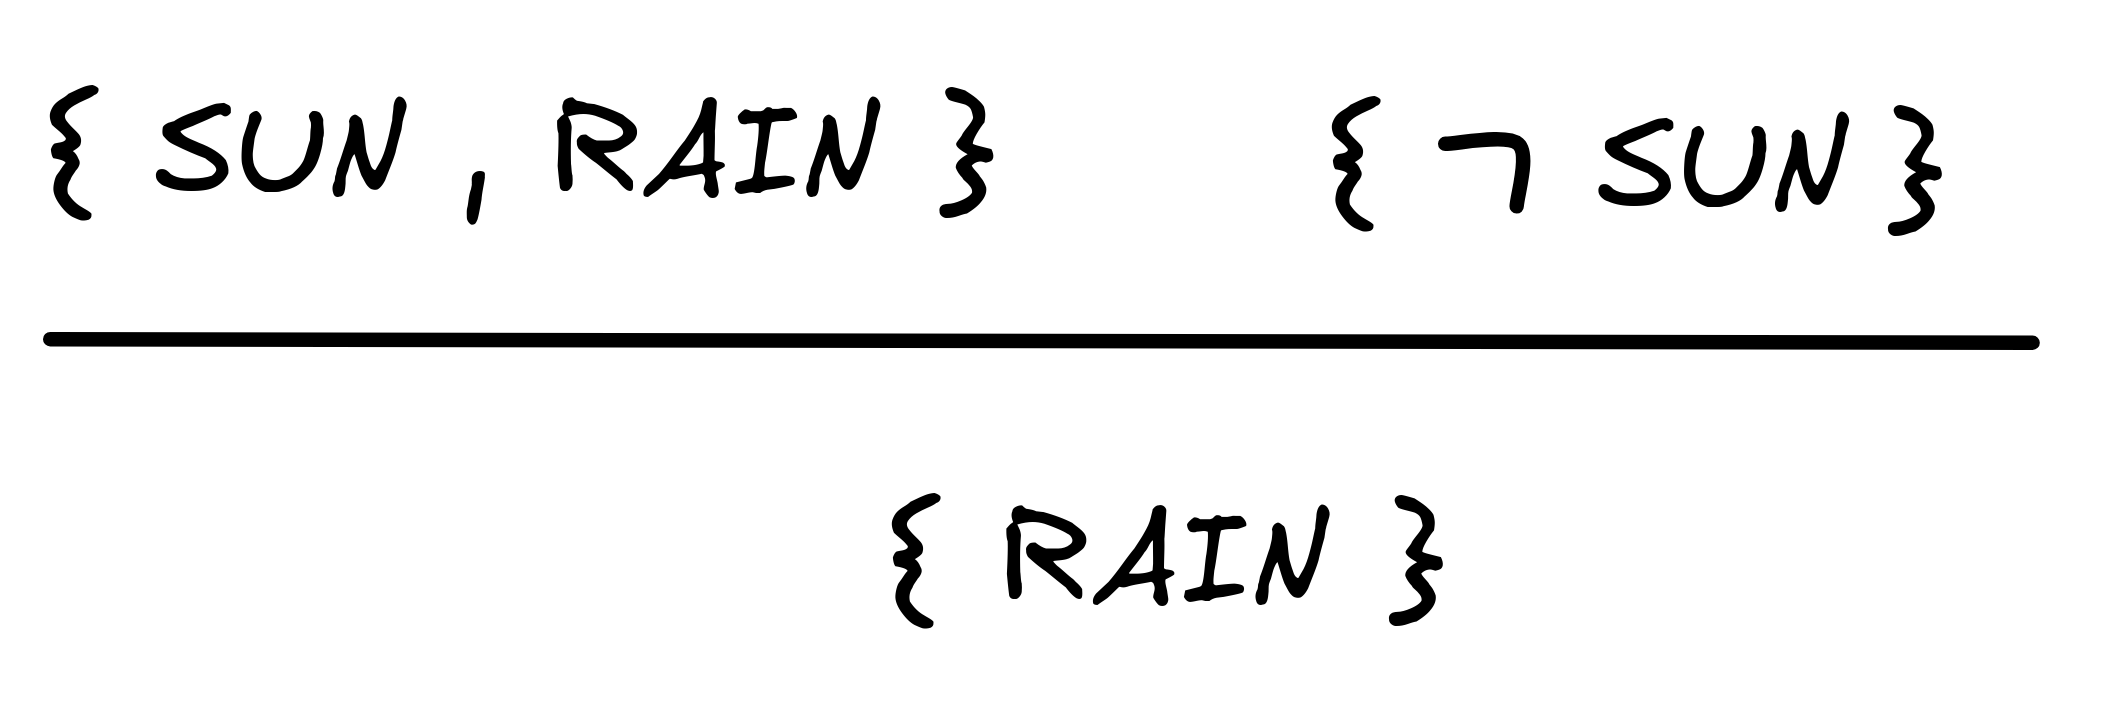 { SUN , RAIN } { ¬ SUN }
{ RAIN }